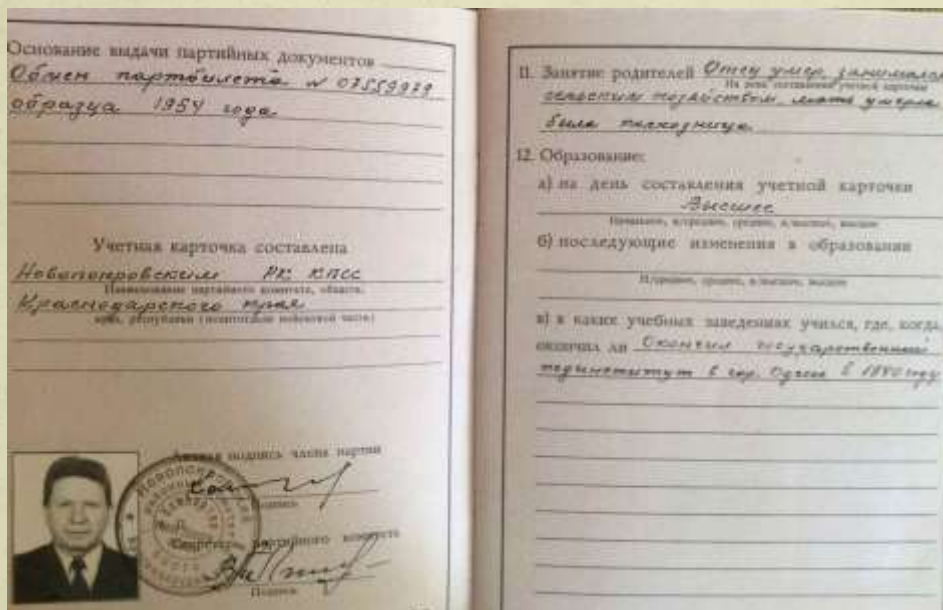 Основание выдачи партийных документов
Обмен партбилета N 07559979
образца 1954 года
Учетная карточка составлена
Новопокровским РК КПСС
Наименование партийного комитета, области,
Краснодарского края
края, республики (политотдела войсковой части)
Личная подпись члена партии
Подпись
Секретарь партийного комитета
Подпись
11. Занятие родителей Отец умер, занимался
На день составления учетной карточки
сельским хозяйством, мать умерла
была колхозница
12. Образование:
а) на день составления учетной карточки
Высшее
Начальное, н/среднее, среднее, н/высшее, высшее
б) последующие изменения в образовании
Н/среднее, среднее, н/высшее, высшее
в) в каких учебных заведениях учился, где, когда,
окончил ли Окончил государственный
пединститут в гор. Одессе в 1940 году